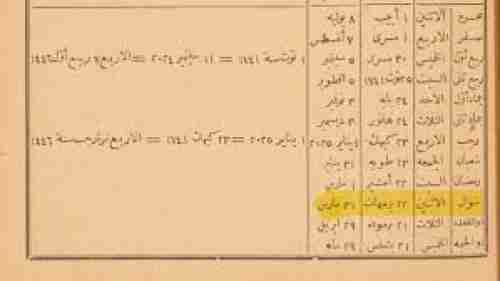 محرم الاثنين ١ أبيب ٨ يوليه
صفر الاربع ١ مسرى ٧ أغسطس
ربيع أول الخميس ٣٠ مسرى ٥ سبتمبر
ربيع ثاني السبت ٢٥ توت ١٧٤١ ٥ اكتوبر
جماد أول الاحد ٢٤ بابه ٣ نوفمبر
جماد ثاني الثلاث ٢٤ هاتور ٣ ديسمبر
رجب الاربع ٢٣ كيهك ١ يناير ٢٠٢٥
شعبان الجمعة ٢٣ طوبه ٣١ يناير
رمضان السبت ٢٢ أمشير ١ مارس
شوال الاثنين ٢٢ برمهات ٣١ مارس
ذو القعده الثلاث ٢١ برموده ٢٩ ابريل
ذو الحجه الخميس ٢١ بشنس ٢٩ مايه
١ توت سنة ١٧٤١ = ١١ سبتمبر ٢٠٢٤ = الاربع ٧ ربيع أول ١٤٤٦
١ يناير ٢٠٢٥ = ٢٣ كيهك ١٧٤١ = الاربع رجب سنة ١٤٤٦